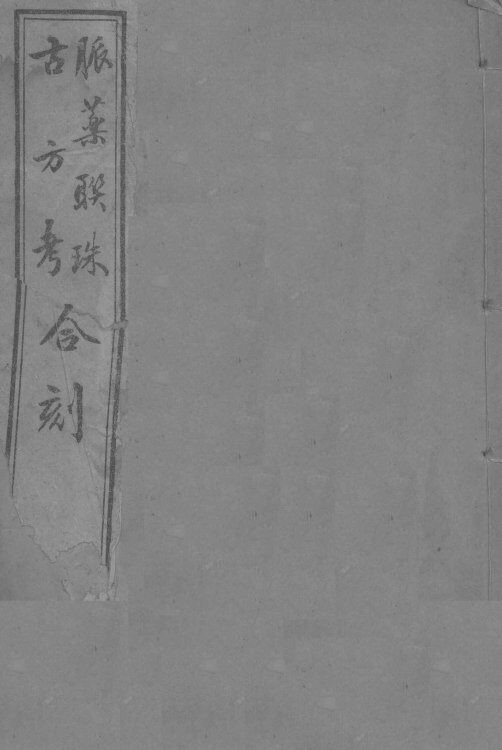 脈藥聯珠
古方考
合刻